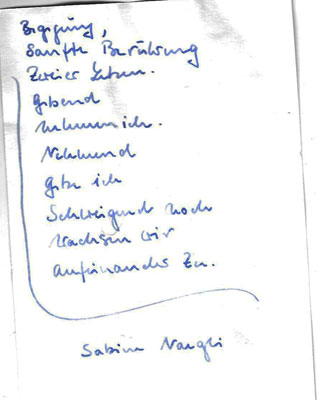 Begegnung,
sanfte Berührung
Zweier Leben.
Gebend
nehmen ich.
Nehmend
gebe ich
Schweigend noch
wachsen wir
aufeinander zu.
Sabine Naegeli